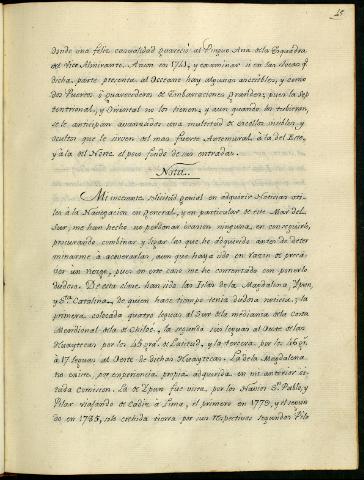 45
donde una feliz casualidad pareció al Pingue Ana de la Esquadra
del Vice Almirante Anson en 1741, y examinar si en las Yslas
dicha parte presenta al Occeano hay algunas accesibles, y como
dos Puertos ó guarecederos de Embarcaciones grandes; pues la Sep
tentrional, y Oriental no los tienen, y aun quando los tubieran,
se le anticipan avanzadas una multitud de escollos visibles, y
ocultos que le sirven del mas fuerte Antemural à la del Este,
y à la del Norte el poco fondo de sus entradas.
Nota.
Mi incesante solicitud genial en adquirir Noticias uti-
les à la Navegacion en general, y en particular de este Mar del
Sur, me han hecho no perdonar ocasion ninguna, en conseguirlo,
procurando combinar y ligar las que he adquirido antes de deter
minarme a aceverarlas, aun que haya sido en razon de preca-
ver un riesgo, pues en este caso me he contentado con ponerlo
dudoso. De esta clase han sido las Yslas de la Magdalena, Ypun,
y Sta. Catalina, de quien hace tiempo tenia dudosa noticia, y la
primera colocada quatro leguas al Sur de la mediania de la Costa
Meridional de la de Chiloe, la segunda seis leguas al Oeste de las
Huaytecas por los 45 grs. de Latitud, y la tercera por los 46 grs.
à 17 leguas al Oeste de dichas Huaytecas. La de la Magdalena
no existe, por experiencia propia adquirida en mi anterior ci-
tada Comision. La de Ypun fue vista, por los Navios Sn. Pablo, y
Pilar viajando de Cadiz à Lima, el primero en 1779, y el segun
do en 1785, sele crehida tierra por sus respectivos segundos Pilo